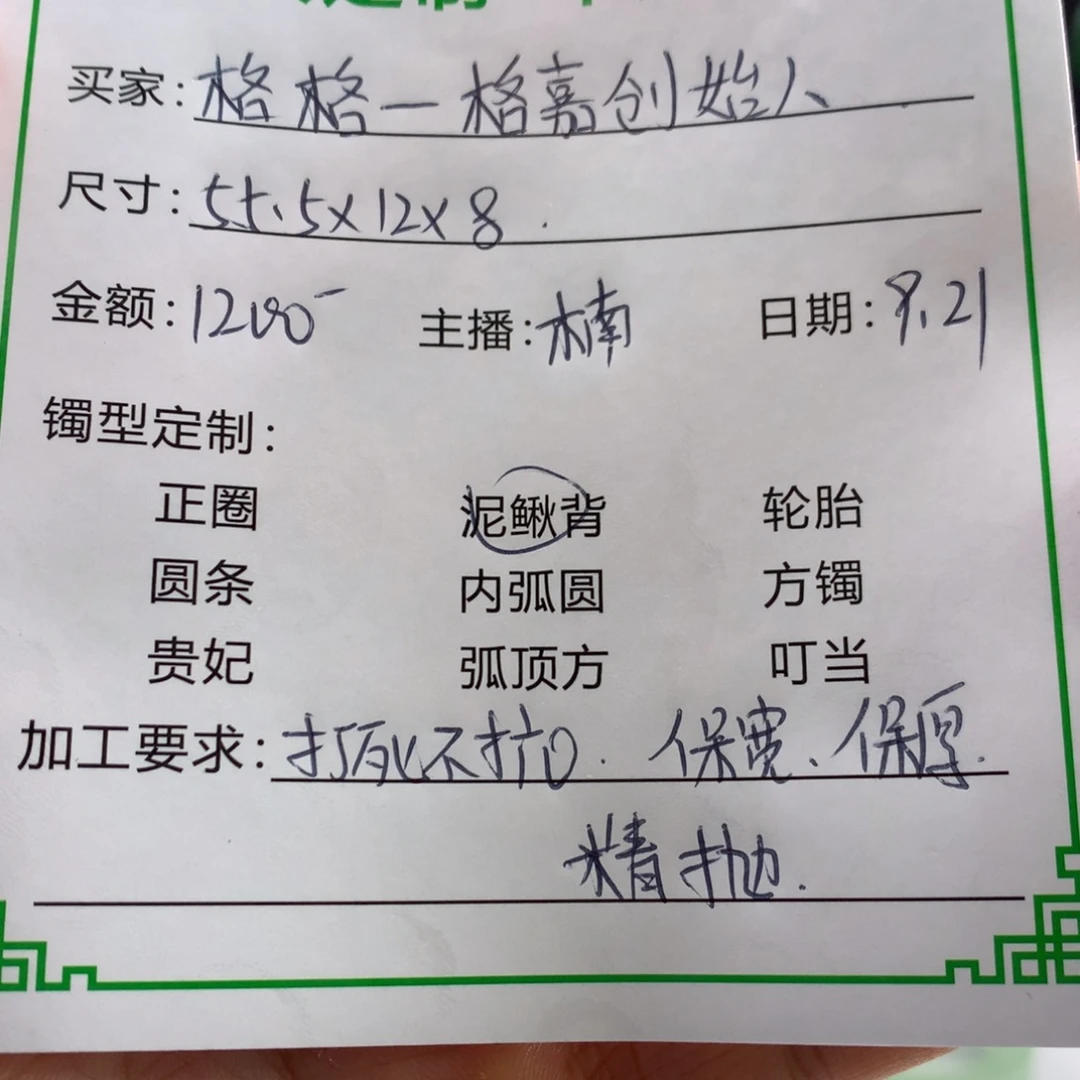 买家:格格一格嘉创始人
尺寸:55.5x12x8.
金额:1200- 主播:楠 日期:9.21
镯型定制:
正圈 泥鳅背 轮胎
圆条 内弧圆 方镯
贵妃 弧顶方 叮当
加工要求: 保宽、保厚.
精抛.